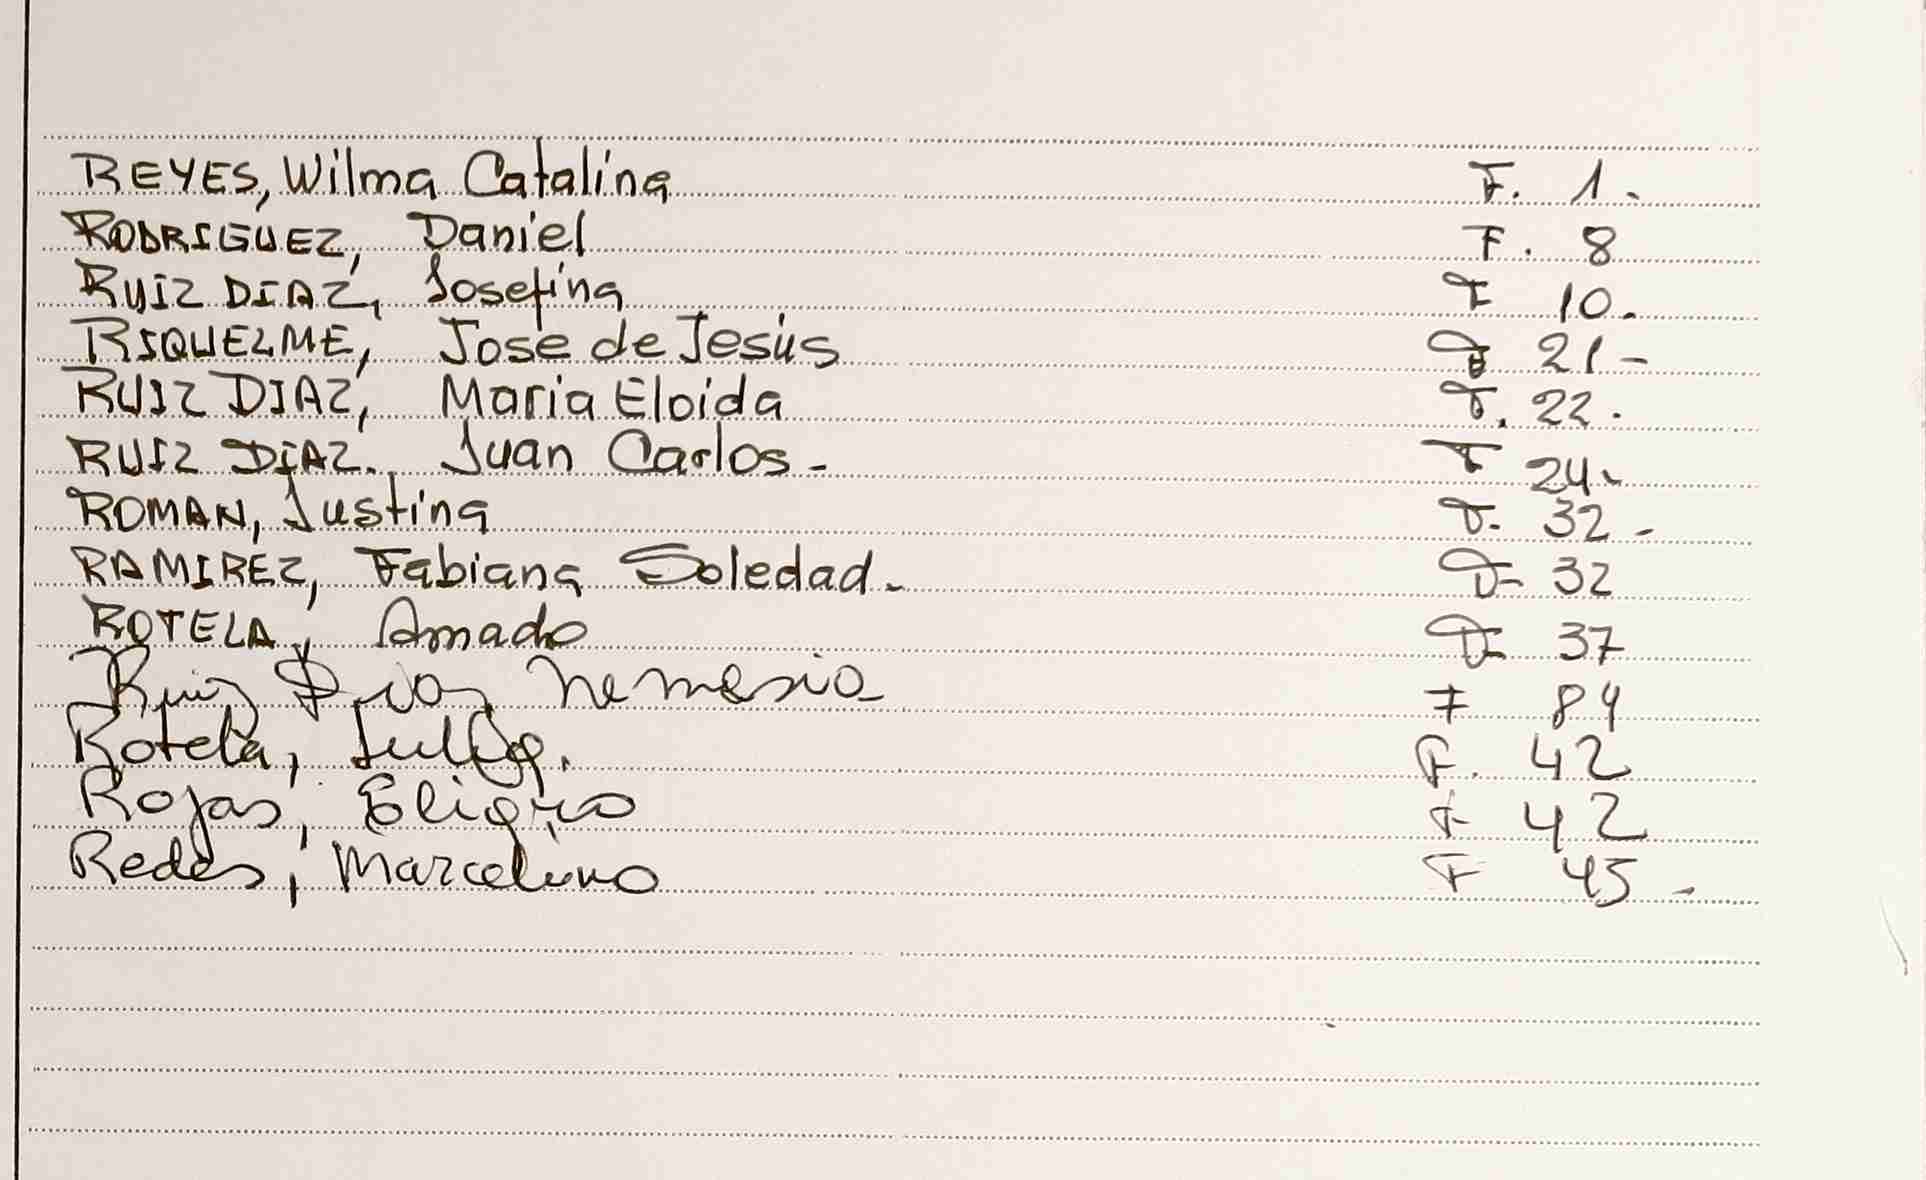 REYES, Wilma Catalina F. 1.
RODRIGUEZ, Daniel F. 8
RUIZ DIAZ, Josefina F 10.
RIQUELME, Jose de Jesús F 21-
RUIZ DIAZ, Maria Eloida F. 22.
RUIZ DIAZ. Juan Carlos- F 24-
ROMAN, Justina F. 32-
RAMIREZ, Fabiana Soledad- F- 32
ROTELA, Amado F- 37
Ruiz Diaz Nemesia F 84
Rotela, F. 42
Rojas, Eligio F 42
Redes, Marcelino F 45-